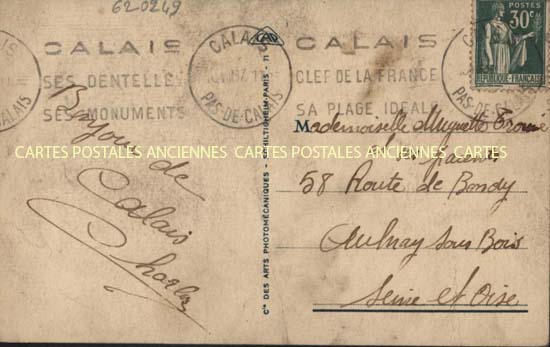 620249
CALAIS
SES DENTELLE
SES MONUMENTS
CALAIS
PAS-DE-CALAIS
CALAIS
CLEF DE LA FRANCE
SA PLAGE IDEAL
POSTES
30c
REPUBLIQUE FRANÇAISE
PAS-DE-C
CALAIS
CAP
Cie DES ARTS PHOTOMÉCANIQUES - SCHILTIGHEIM-PARIS - 11
CARTES POSTALES ANCIENNES CARTES POSTALES ANCIENNES CARTES
Bonjour de
Calais
Charles
Mademoiselle Muguette
58 Route de Bondy
Aulnay sous Bois
Seine et Oise